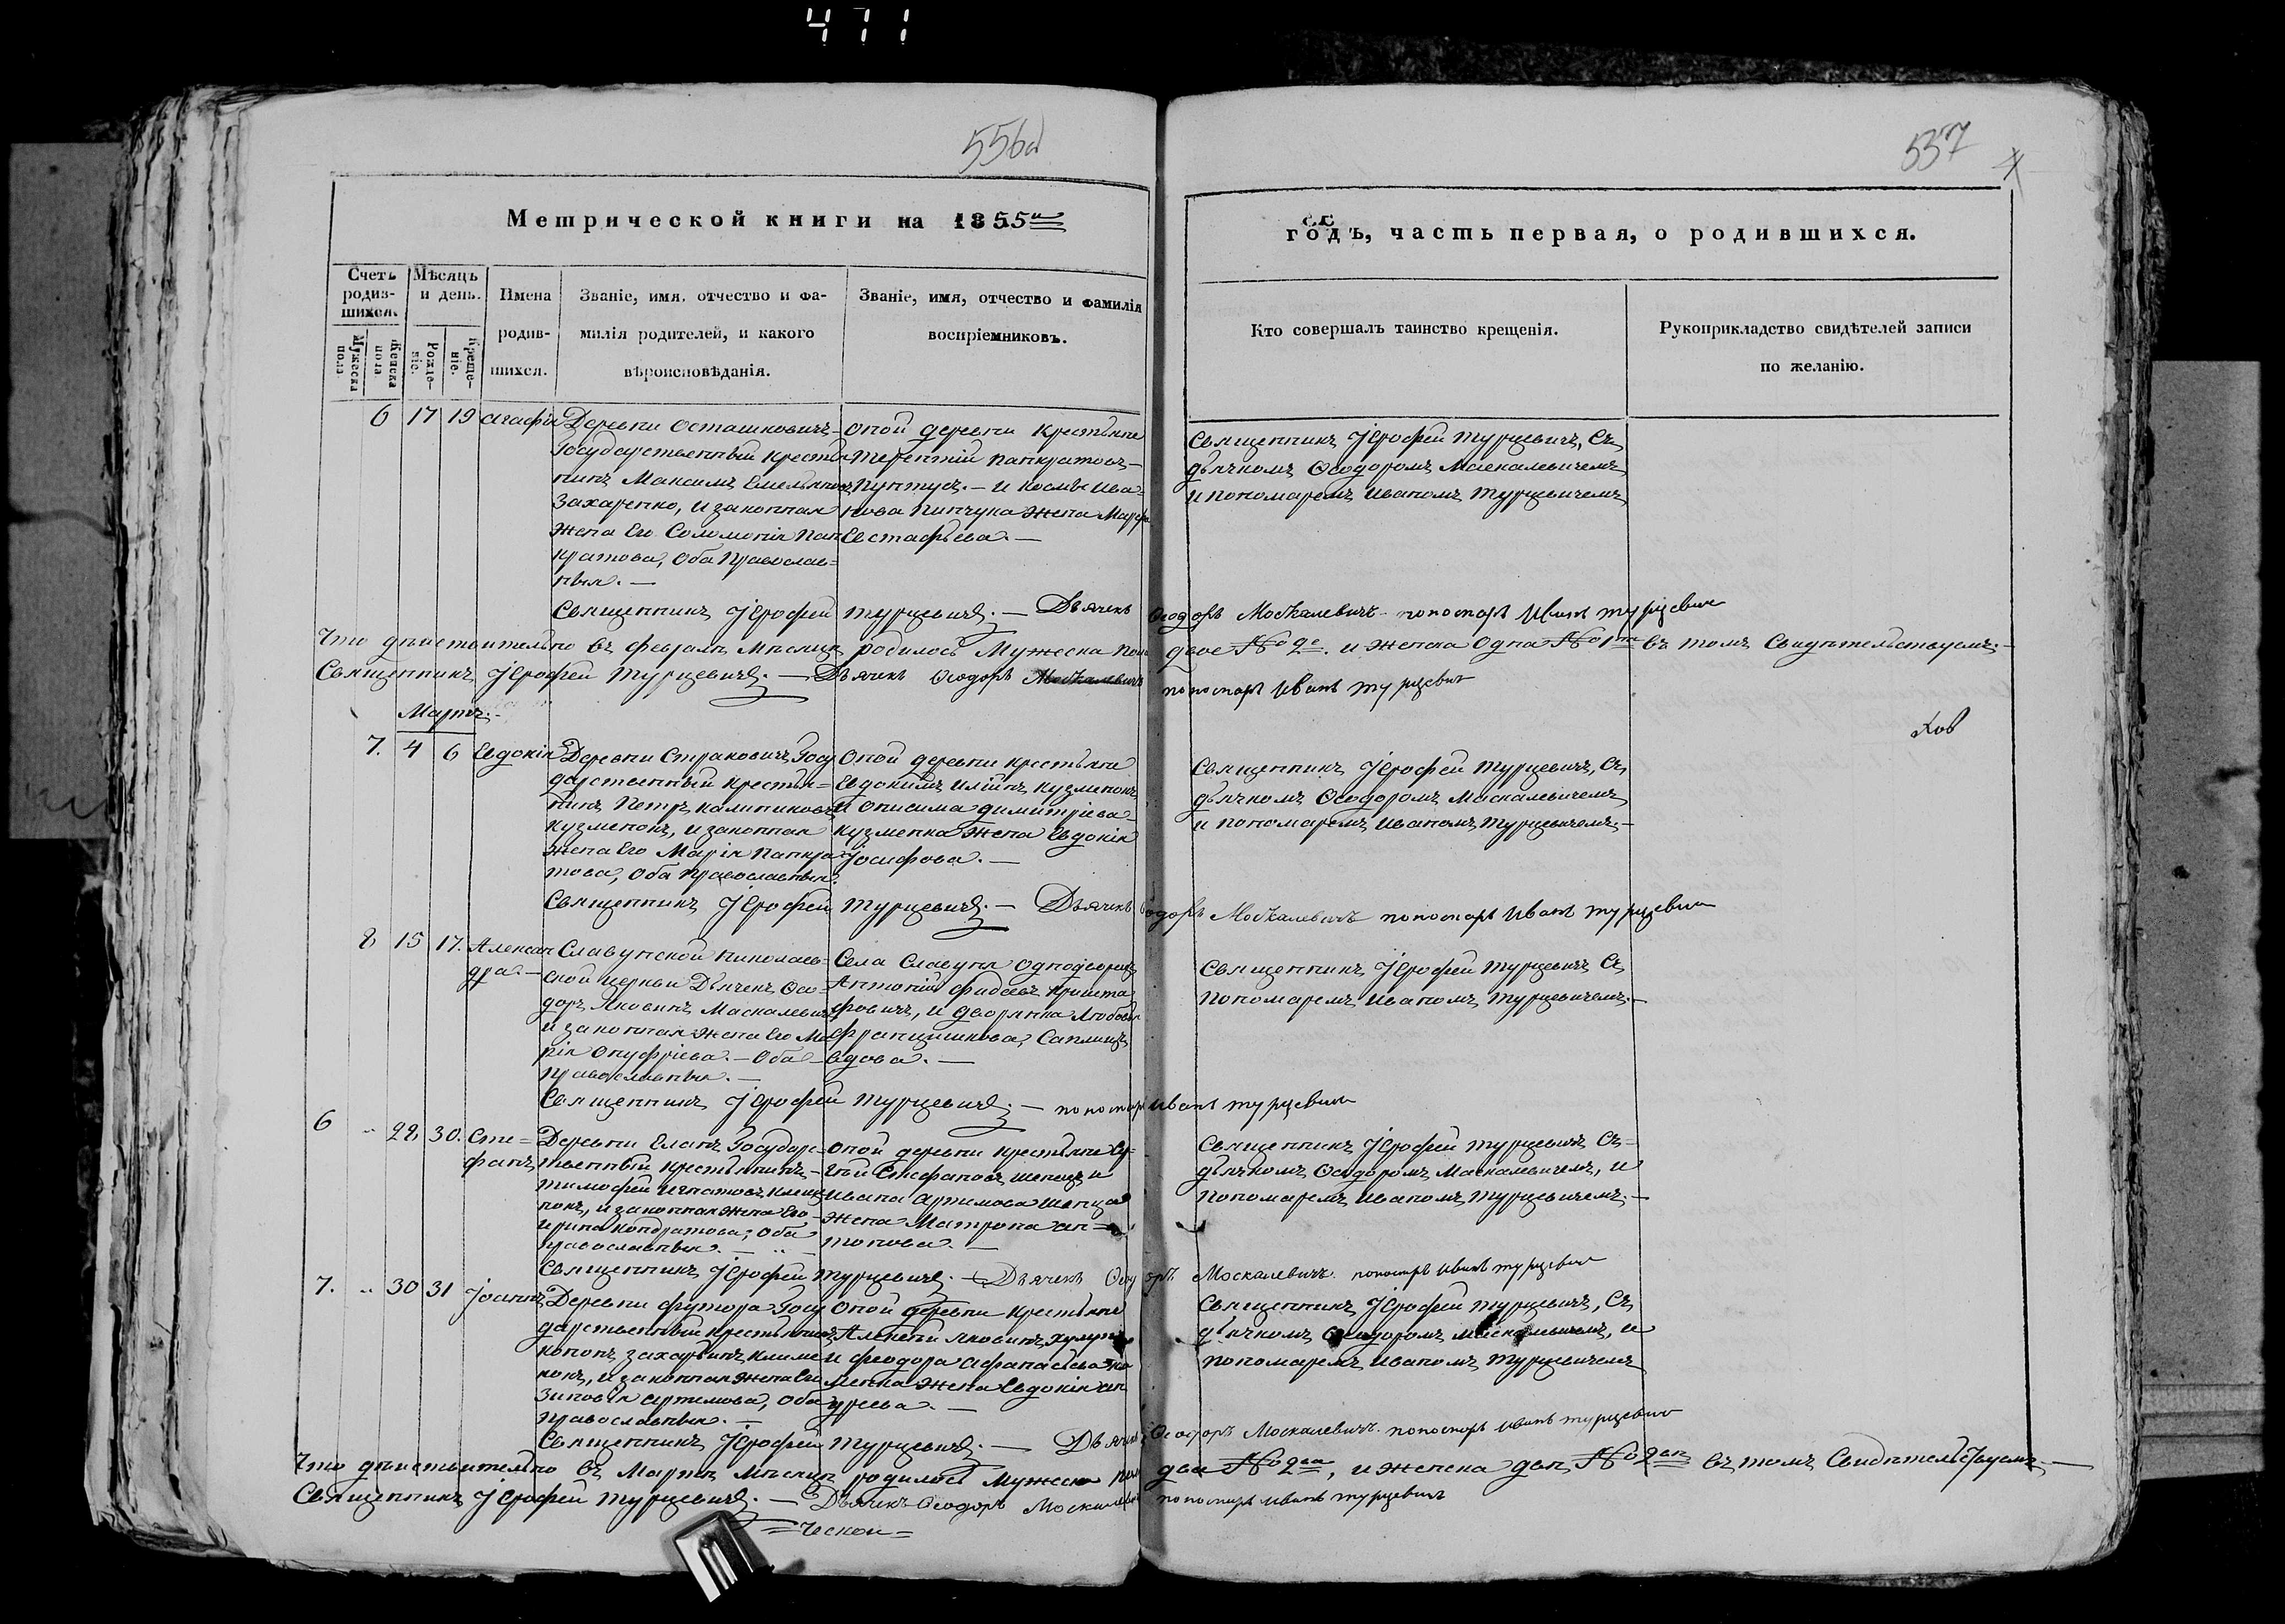 471
556об
557
Метрической книги на 1855й
годъ, часть первая, о родившихся.
Счетъ родив-шихся.
Мѣсяцъ и день.
Имена родив-шихся.
Званіе, имя, отчество и фа-
милія родителей, и какого
вѣроисповѣданія.
Званіе, имя, отчество и фамилія
воспріемниковъ.
Кто совершалъ таинство крещенія.
Рукоприкладство свидѣтелей записи
по желанію.
Мужеска пола
Женска пола
Рожде-ніе.
Креще-ніе.
6 17 19 Агафія
Деревни Осташковичъ
Государственный крестья
нинъ Максимъ Емельяновъ
Захаренко, и законная
жена Его Соломонія Пан
кратова, Оба Православ=
ныя. —
оной деревни Крестьяне
Терентій Панкратовъ
Пунтусъ. — и Космы Ива=
нова Пинчука жена Марфа
Евстафьева. —
Священникъ Іерофей Турцевичъ, Съ
дьячкомъ Ѳеодоромъ Маскалевичемъ
и пономаремъ Иваномъ Турцевичемъ
Священникъ Іерофей Турцевичъ. — Дьячекъ Ѳеодоръ Москалевичъ пономарь Иванъ Турцевичъ
Что дѣйствительно въ Февралѣ Мѣсяцѣ родилось Мужеска пола двое № 2е. и женска Одна № 1на въ томъ Свидѣтельствуемъ. —
Священникъ Іерофей Турцевичъ. — Дьячекъ Ѳеодоръ Москалевичъ пономарь Иванъ Турцевичъ
Мартъ.
7. 4 6 Евдокія
Деревни Страковичъ Госу
дарственный крестья=
нинъ Петръ Калиниковъ
Кузменокъ, и законная
жена Его Марія Панкра
това, Оба Православныя.
Оной деревни крестьяне
Евдокимъ Илійнъ Кузменокъ
и Онисима Димитріева
Кузменка жена Евдокія
Іосифова. —
Священникъ Іерофей Турцевичъ, Съ
дьячкомъ Ѳеодоромъ Маскалевичемъ
и пономаремъ Иваномъ Турцевичемъ. —
Священникъ Іерофей Турцевичъ. — Дьячекъ Ѳеодоръ Москалевичъ пономарь Иванъ Турцевичъ
8 15 17. Алексан
дра. —
Славунской Николаев=
ской церкви Дьячекъ Ѳео=
доръ Яковинъ Маскалевичъ
и законная жена Его Ма
рія Онуфріева. — Оба
Православныя. —
Села Славуня Однодворецъ
Антоній Фадеевъ Криста
фовичъ, и дворянка Любовь
Францишкова,
вдова. —
Священникъ Іерофей Турцевичъ Съ
пономаремъ Иваномъ Турцевичемъ. —
Священникъ Іерофей Турцевичъ. — пономарь Иванъ Турцевичъ
6 „ 22 30. Сте=
фанъ
Деревни Еланъ Государс=
твенный крестьянинъ
Тимофей Игнатовъ Климе
нокъ, и законная жена Его
Ирина Кондратова, Оба
Православныя. —
оной деревни крестьяне
Стефановъ Шевецъ и
Ивана Артимова Шевца
жена Матрона Ан=
тонова. —
Священникъ Іерофей Турцевичъ Съ=
дьячкомъ Ѳеодоромъ Маскалевичемъ, и
пономаремъ Иваномъ Турцевичемъ. —
Священникъ Іерофей Турцевичъ. — Дьячекъ Ѳеодоръ Москалевичъ. пономарь Иванъ Турцевичъ
7. „ 30 31 Іоаннъ
Деревни Футора Госу
дарственный крестьянинъ
Кононъ Захарьинъ Климе
нокъ, и законная жена Его
Зиновія Артимова, Оба
Православныя. —
Оной деревни крестьяне
Алексѣй Яковинъ
и Феодора Афанасьева
менка жена Евдокія Ан
дреева. —
Священникъ Іерофей Турцевичъ, Съ
дьячкомъ Ѳеодоромъ Маскалевичемъ, и
пономаремъ Иваномъ Турцевичемъ
Священникъ Іерофей Турцевичъ. — Дьячекъ Ѳеодоръ Москалевичъ. пономарь Иванъ Турцевичъ
Что дѣйствительно въ Мартѣ Мѣсяцѣ родилось Мужеска пола два № 2ва, и женска двѣ № 2вѣ въ томъ Свидѣтельствуемъ —
Священникъ Іерофей Турцевичъ. — Дьячекъ Ѳеодоръ Москалевичъ пономарь Иванъ Турцевичъ
=ческой=